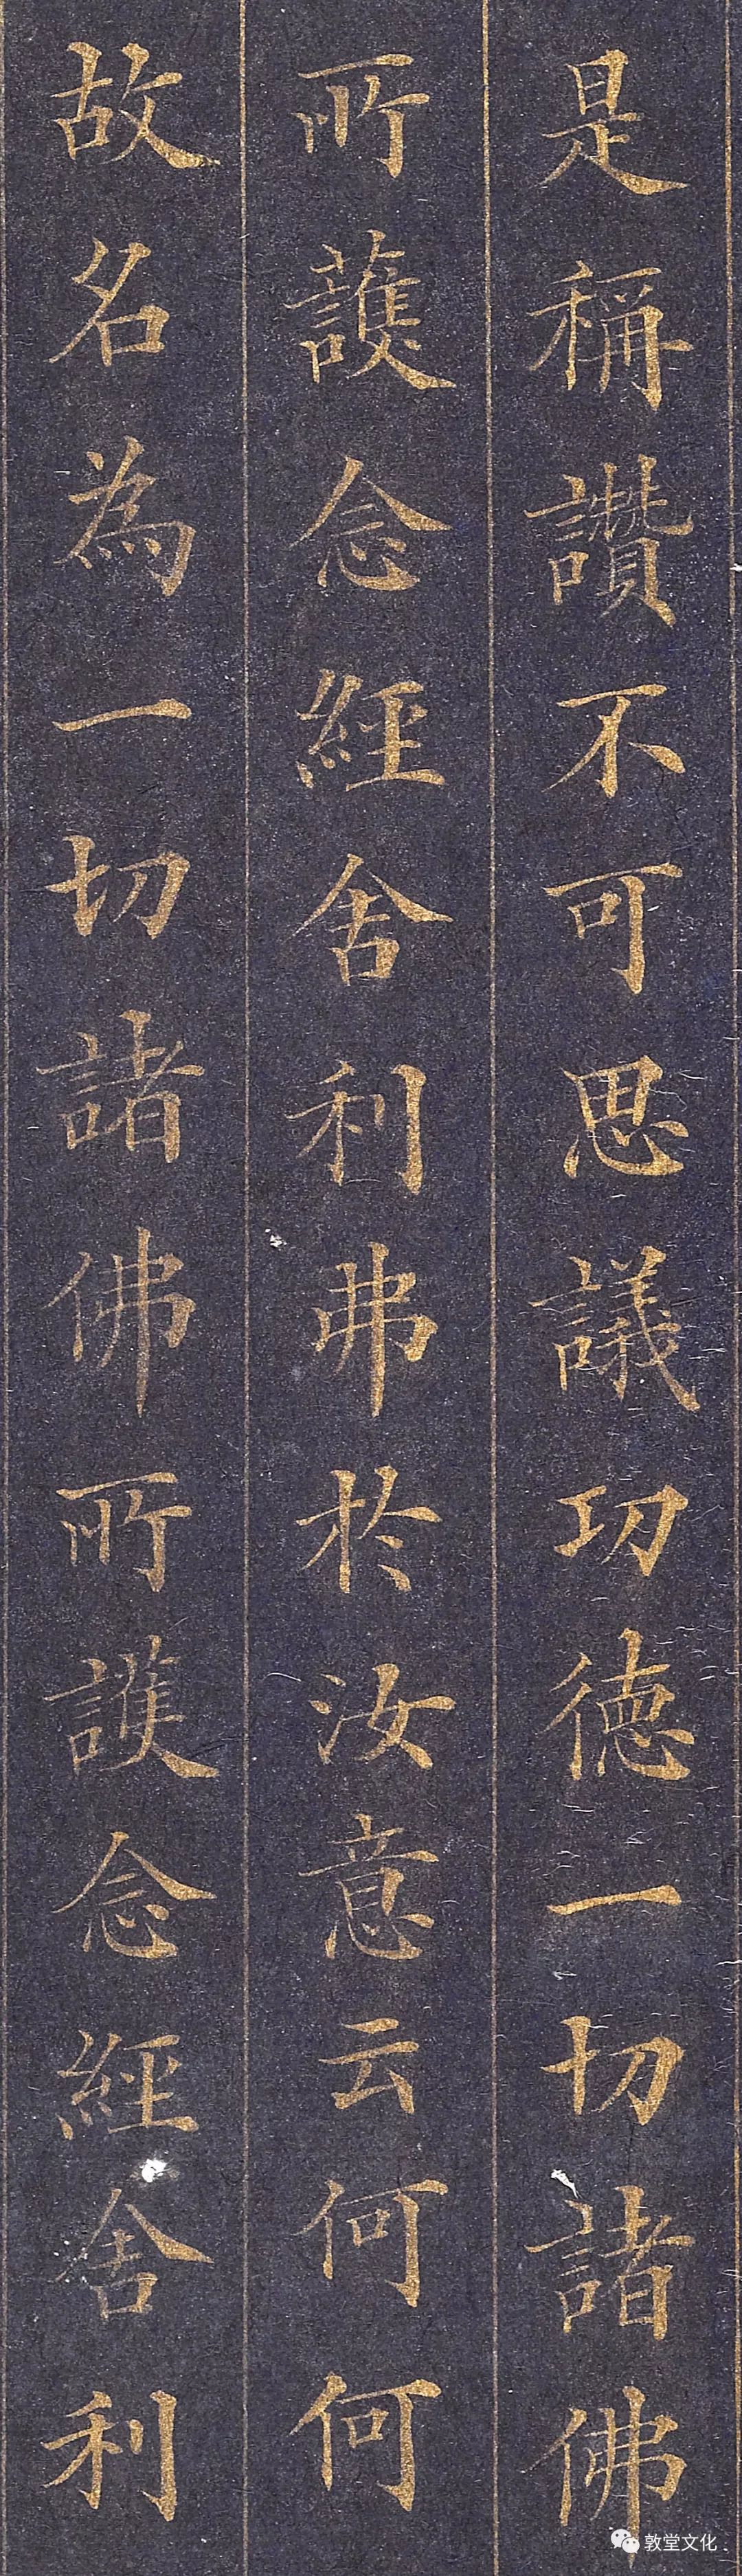 是稱讚不可思議功德一切諸佛
所護念經舍利弗於汝意云何何
故名為一切諸佛所護念經舍利
敦堂文化